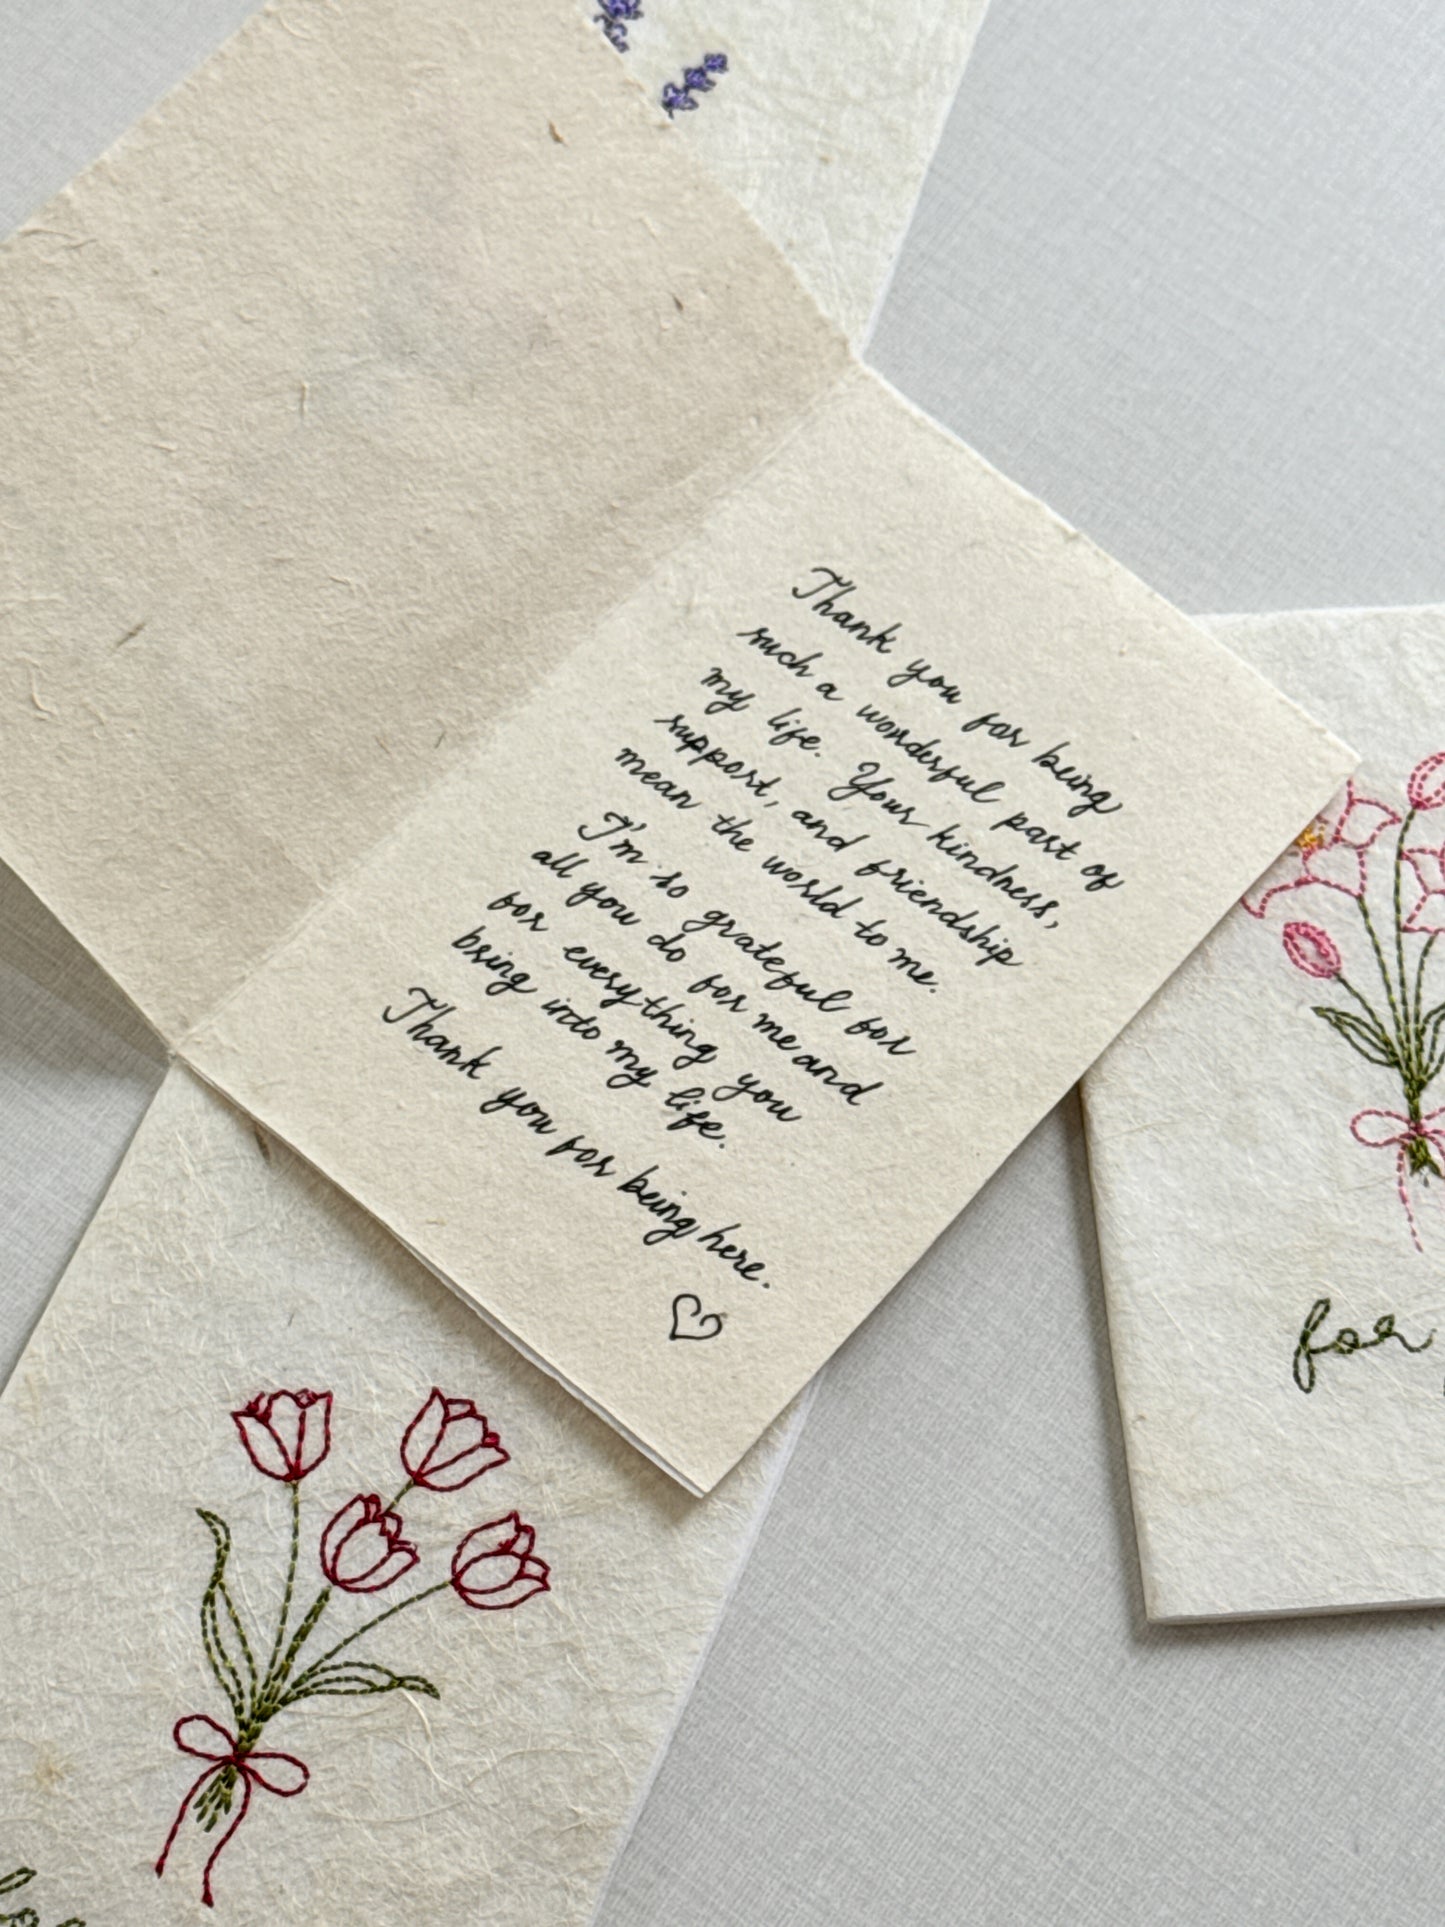 Thank you for being
such a wonderful part of
my life. Your kindness,
support, and friendship
mean the world to me.
I'm so grateful for
all you do for me and
for everything you
bring into my life.
Thank you for being here.
for